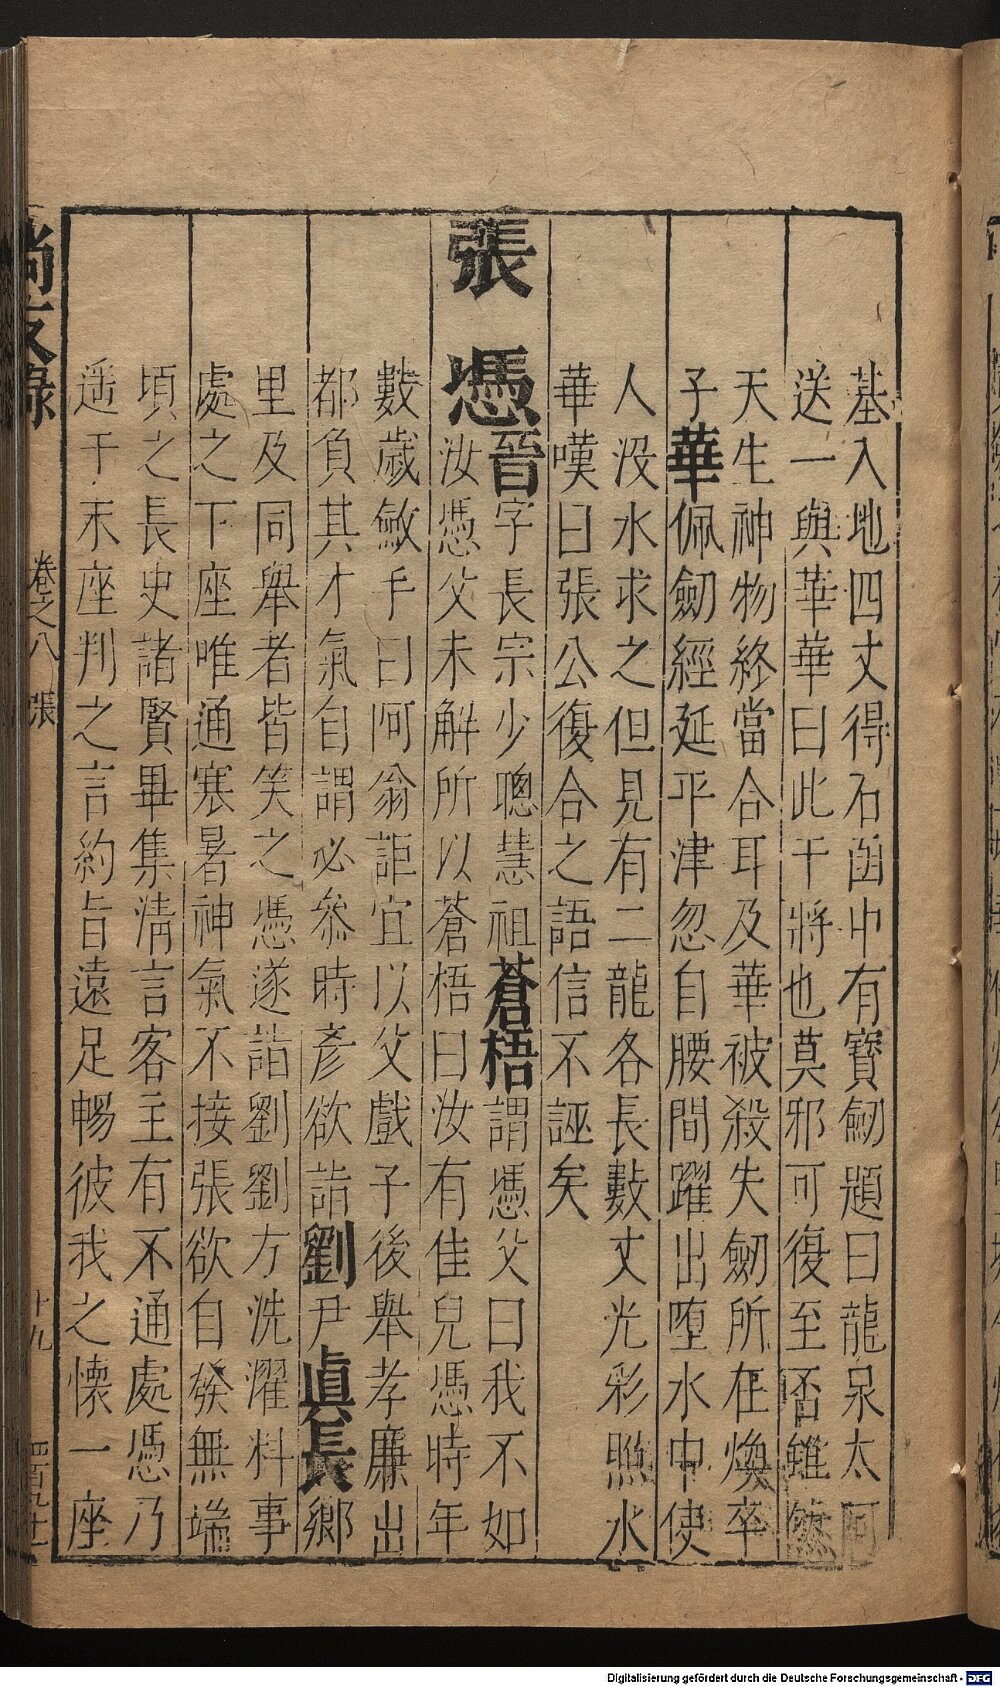 基入地四丈得石函中有寶劒題曰龍泉太阿
送一與華華曰此干將也莫邪可復至否雖然
天生神物終當合耳及華被殺失劒所在煥卒
子華佩劒經延平津忽自腰間躍出堕水中使
人沒水求之但見有二龍各長數丈光彩照水
華嘆曰張公復合之語信不誣矣
張憑晉字長宗少聰慧祖蒼梧謂憑父曰我不如
汝憑父未解所以蒼梧曰汝有佳兒憑時年
數歲斂手曰阿翁詎宜以父戲子後舉孝廉出
都負其才氣自謂必叅時彥欲詣劉尹眞長鄉
里及同舉者皆笑之憑遂詣劉劉方洗濯料事
處之下座唯通寒暑神氣不接張欲自發無端
頃之長史諸賢畢集清言客主有不通處憑乃
遥于末座判之言約旨遠足暢彼我之懐一座
尚友錄 卷之八 張 十九
Digitalisierung gefördert durch die Deutsche Forschungsgemeinschaft - DFG